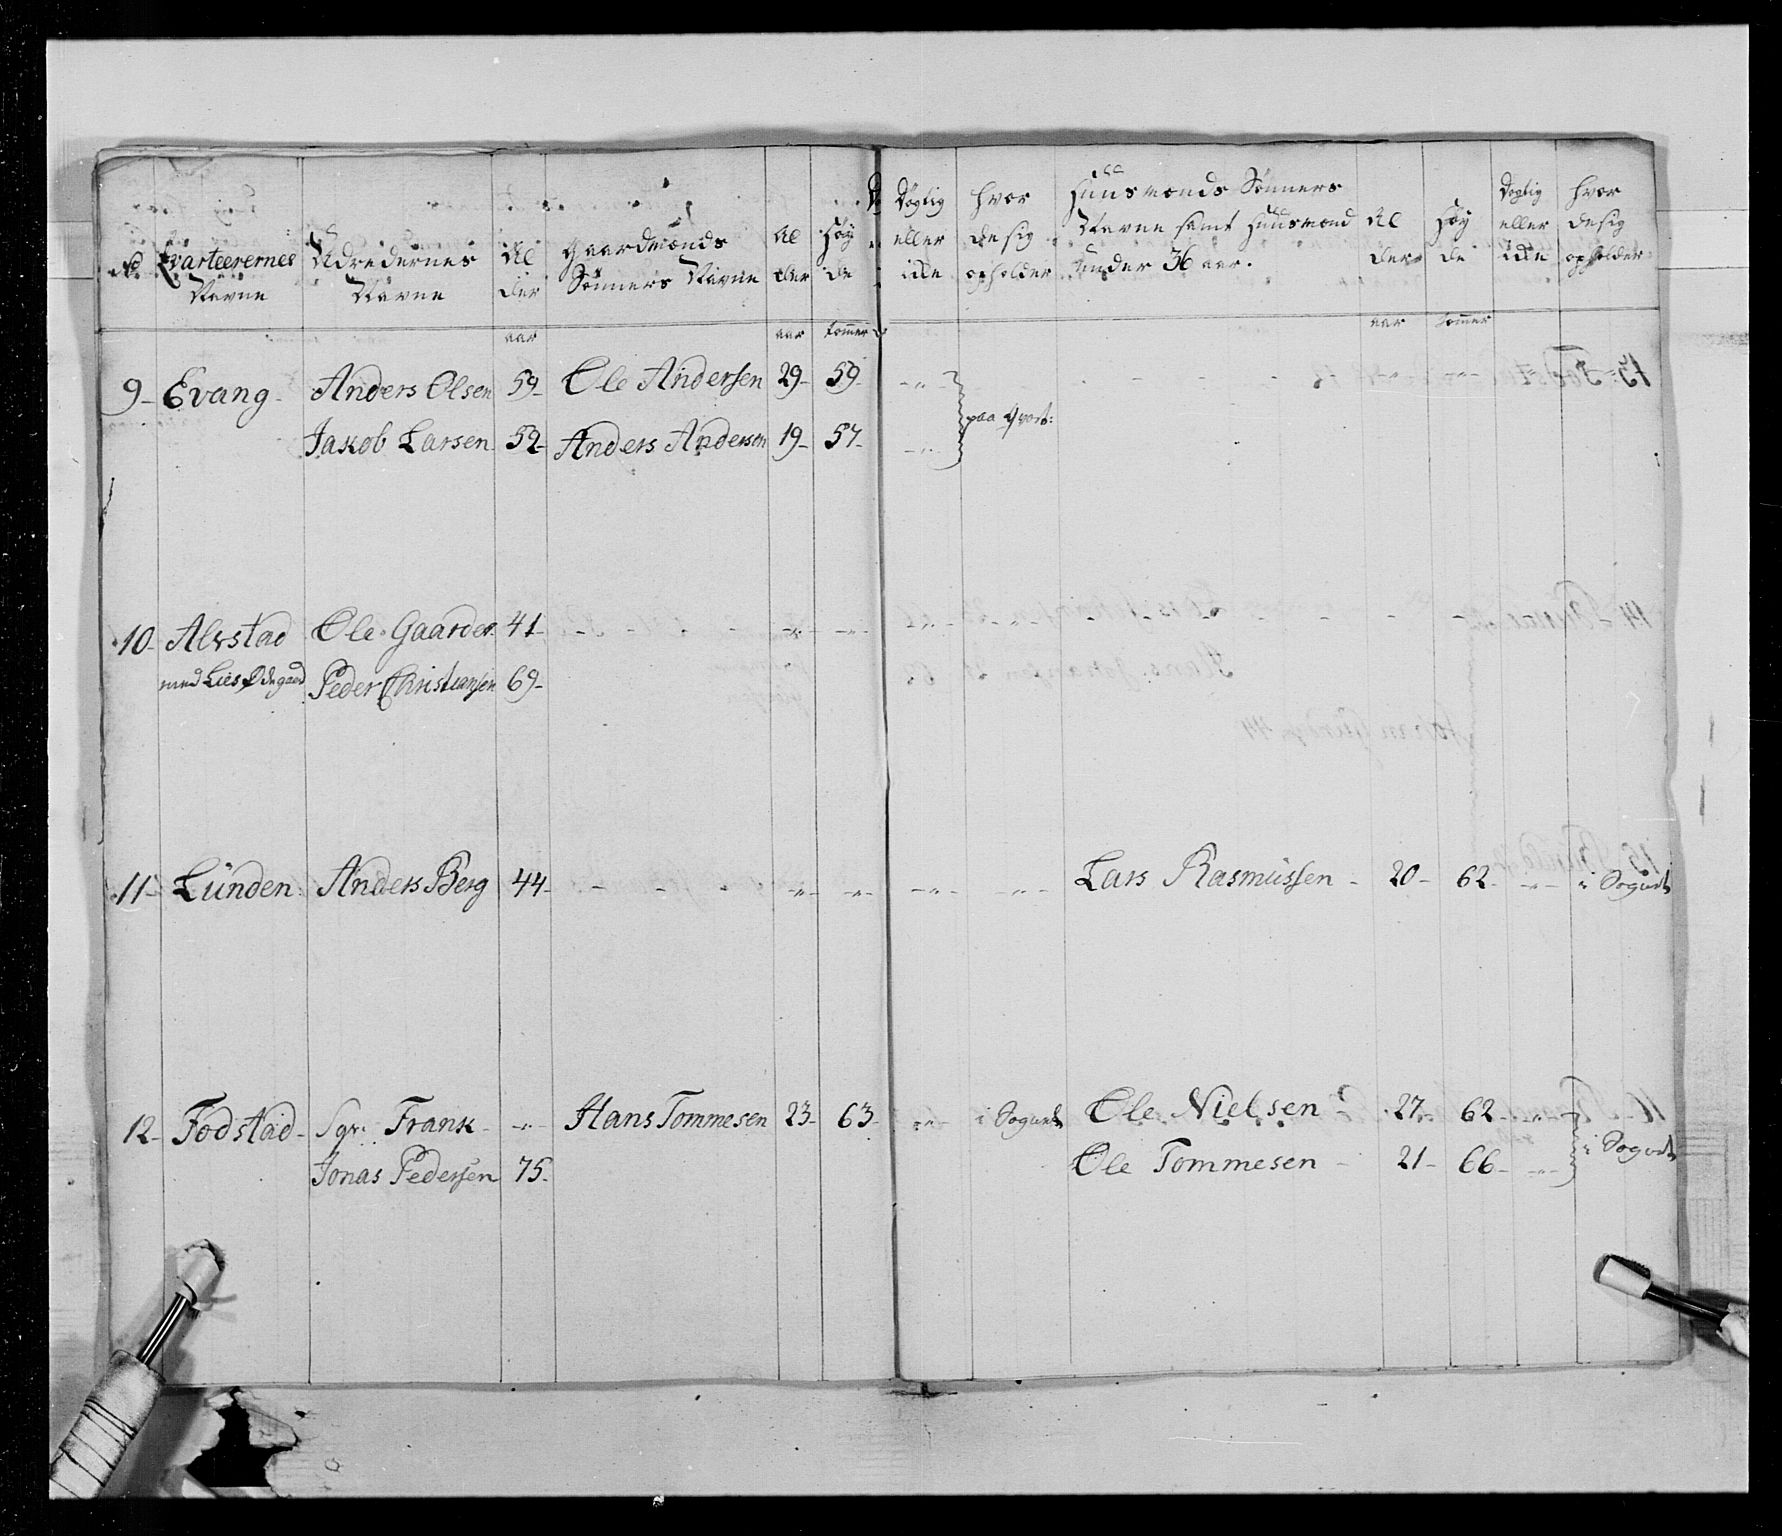 No Qvarteerernes Navne Udredernes Navne Al der Gaardmænds Sønners Navne Al der Høy de Dygtig eller ikke hvor de sig opholder Huusmænds Sønners Navne samt Huusmænd under 36 aar. Al der Høy de Dygtig eller ikke hvor de sig opholder
aar aar tommer aar tommer
9- Evang- Anders Olsen 59- Ole Andersen 29- 59- -"-
paa Qvart:
Jakob Larsen 52- Anders Andersen 19- 57- -"-
10- Alvstad Ole Gaarder 41- -"- -"-
med Lies Ødegaard Peder Christiansen 69-
11- Lünden: Anders Berg 44- - - - -"- -"- -"- -"- Lars Rasmüssen - 20- 62- -"- i Sognet
12- Fodstad- Sgr: Frank- -"- Hans Tommesen 23- 63- -"- i Sognet Ole Nielsen - 27- 62- -"-
i Sognet
Jonas Pedersen 75- Ole Tommesen - 21- 66- -"-